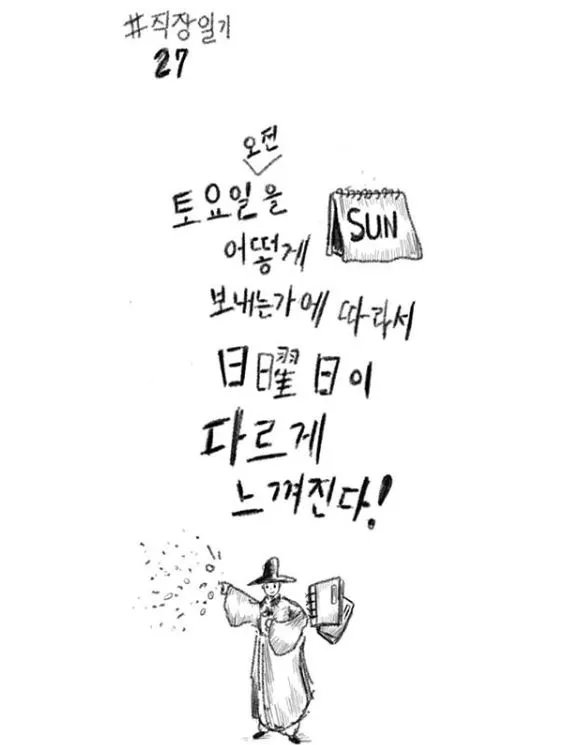 #직장일기
27
오전
토요일을
SUN
어떻게
보내는가에 따라서
日曜日이
다르게
느껴진다!